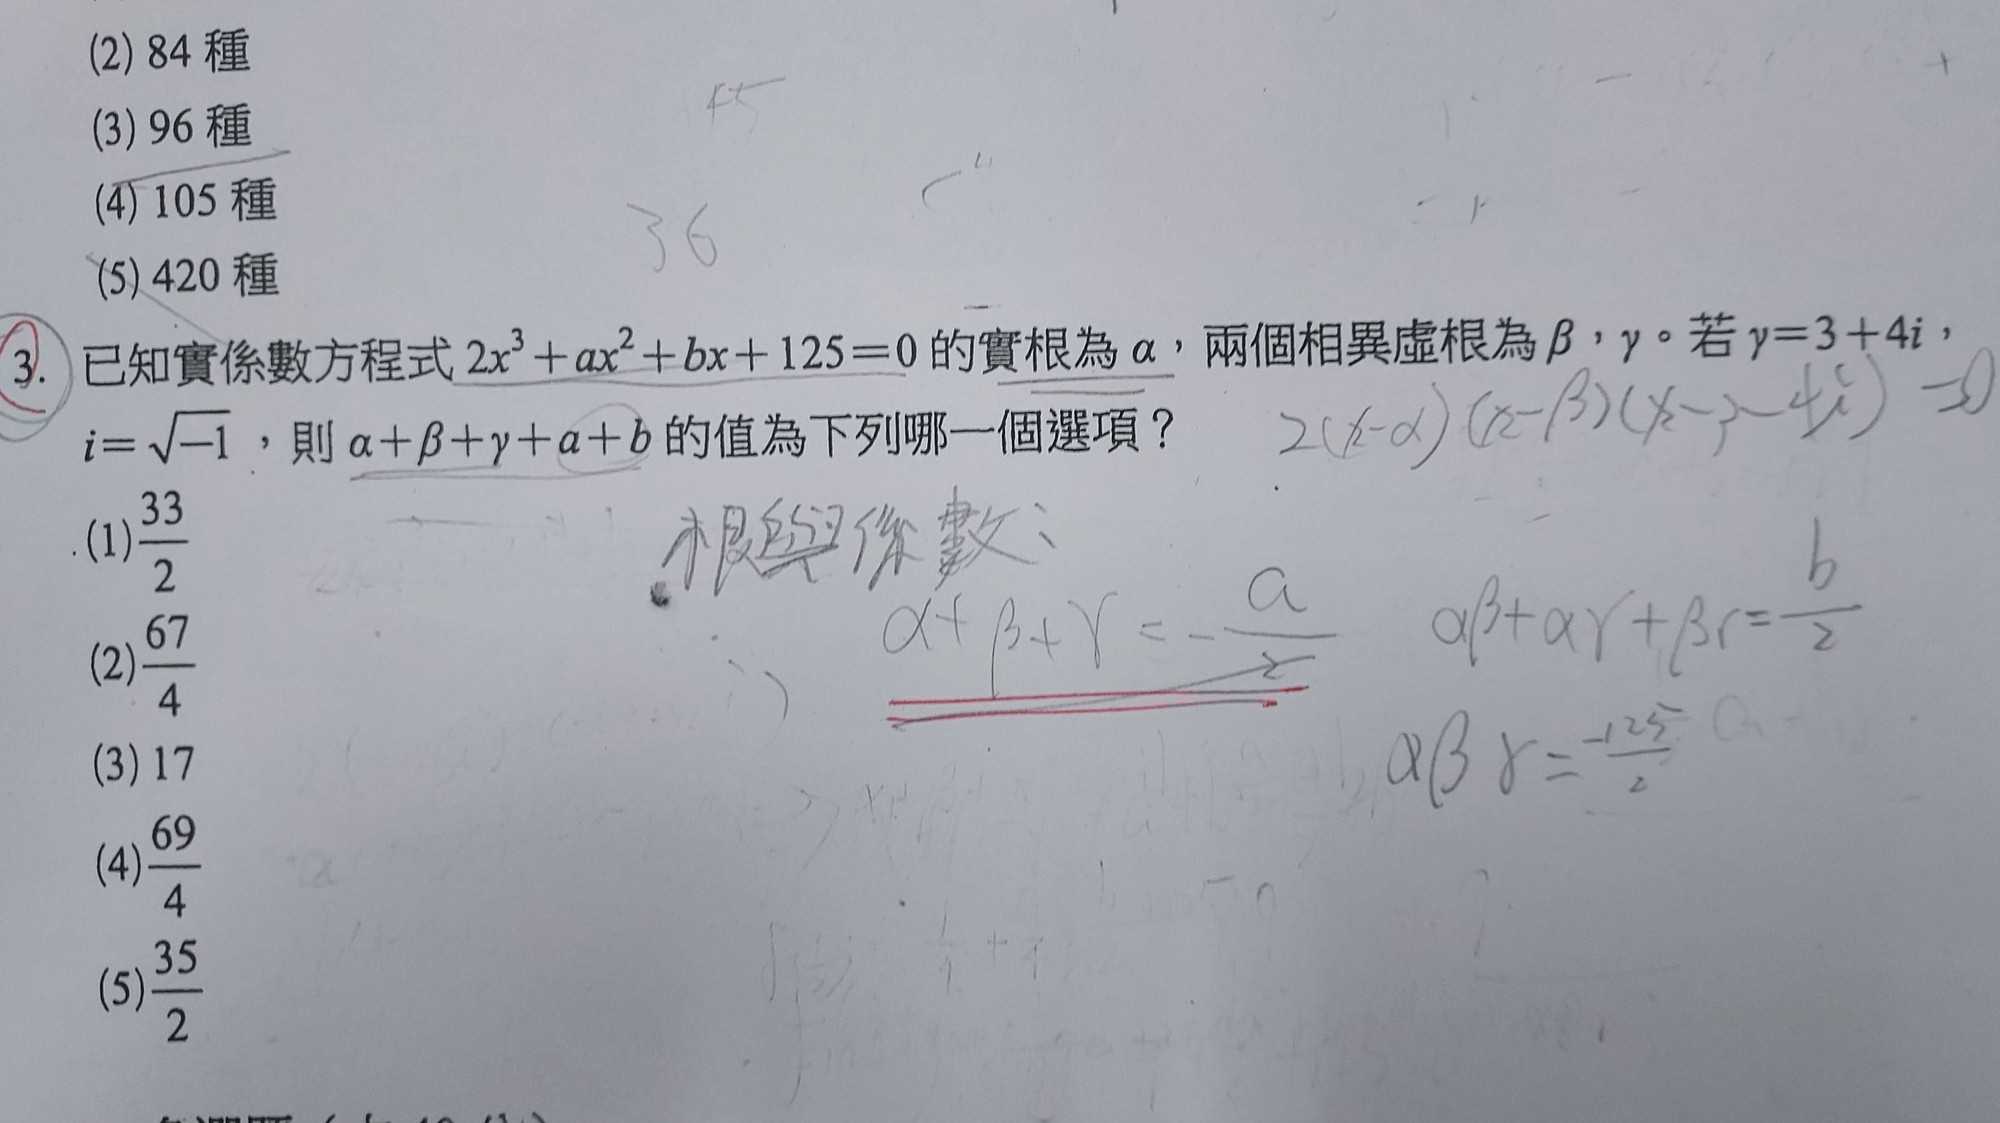 (2) 84 種
(3) 96 種
(4) 105 種
(5) 420 種
45
36
3. 已知實係數方程式 2x³+ax²+bx+125=0 的實根為 α，兩個相異虛根為 β，γ。若 γ=3+4i，
i=√−1，則 α+β+γ+a+b 的值為下列哪一個選項？
2(x-α)(x-β)(x-3-4i)=0
(1) 33/2
(2) 67/4
(3) 17
(4) 69/4
(5) 35/2
根與係數：
α+β+γ=-a/2
αβ+αγ+βγ=b/2
αβγ=-125/2